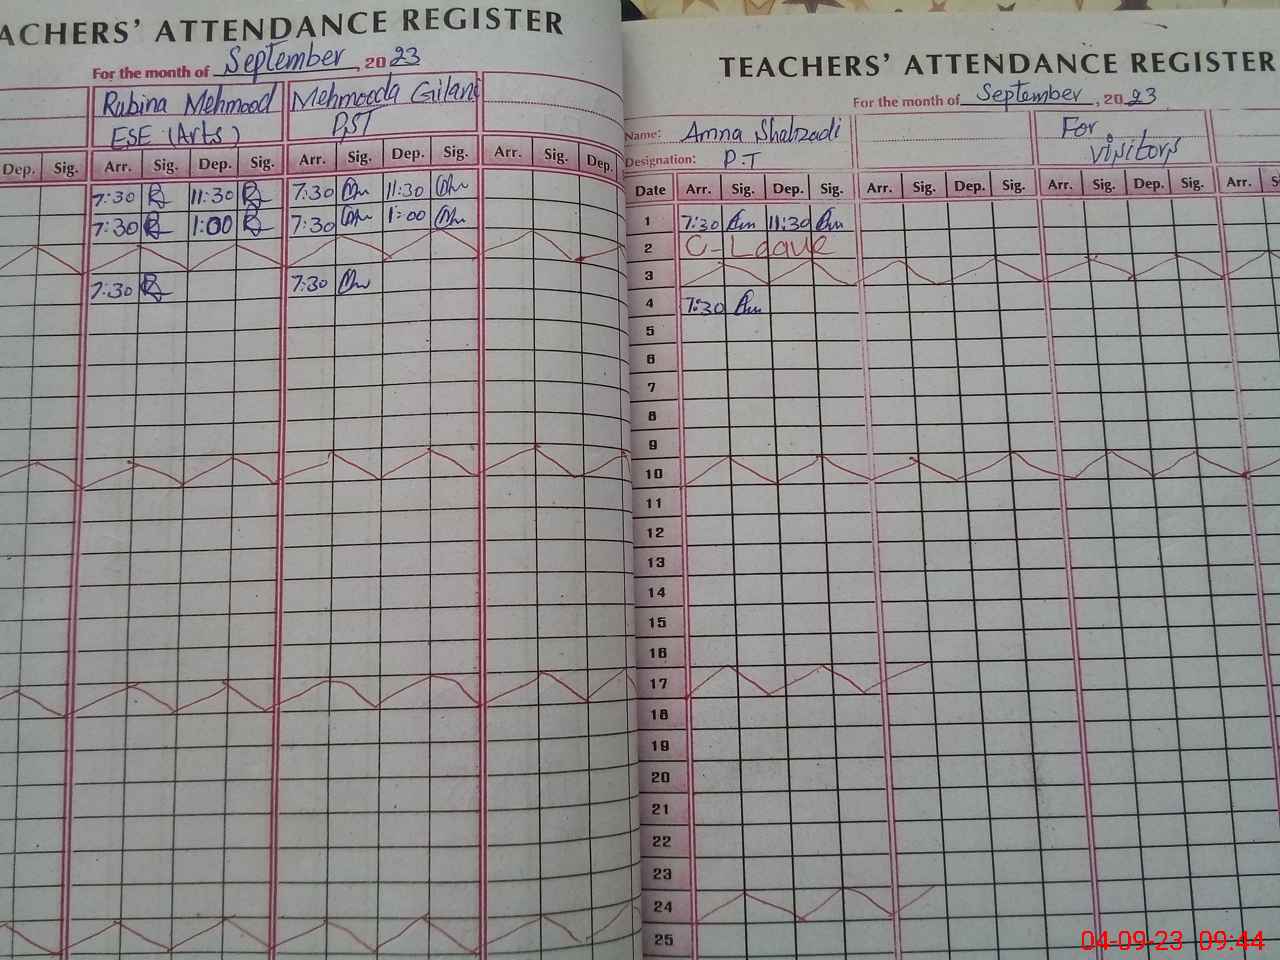 ACHERS' ATTENDANCE REGISTER
For the month of September, 2023
Rubina Mehmood Mehmooda Gilani
ESE (Arts) PST
Dep. Sig. Arr. Sig. Dep. Sig. Arr. Sig. Dep. Sig. Arr. Sig. Dep.
7:30 11:30 7:30 11:30
7:30 1:00 7:30 1:00
7:30 7:30
TEACHERS' ATTENDANCE REGISTER
For the month of September, 2023
Name: Amna Shahzadi For
Designation: P.T visitors
Date Arr. Sig. Dep. Sig. Arr. Sig. Dep. Sig. Arr. Sig. Dep. Sig. Arr. S
1 7:30 11:30
2 C-Leave
3
4 7:30
5
6
7
8
9
10
11
12
13
14
15
16
17
18
19
20
21
22
23
24
25
04-09-23 09:44